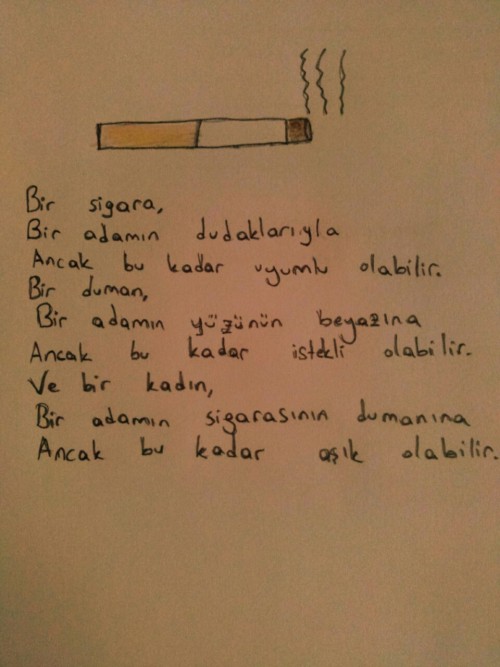 Bir sigara,
Bir adamın dudaklarıyla
Ancak bu kadar uyumlu olabilir.
Bir duman,
Bir adamın yüzünün beyazına
Ancak bu kadar istekli olabilir.
Ve bir kadın,
Bir adamın sigarasının dumanına
Ancak bu kadar aşık olabilir.